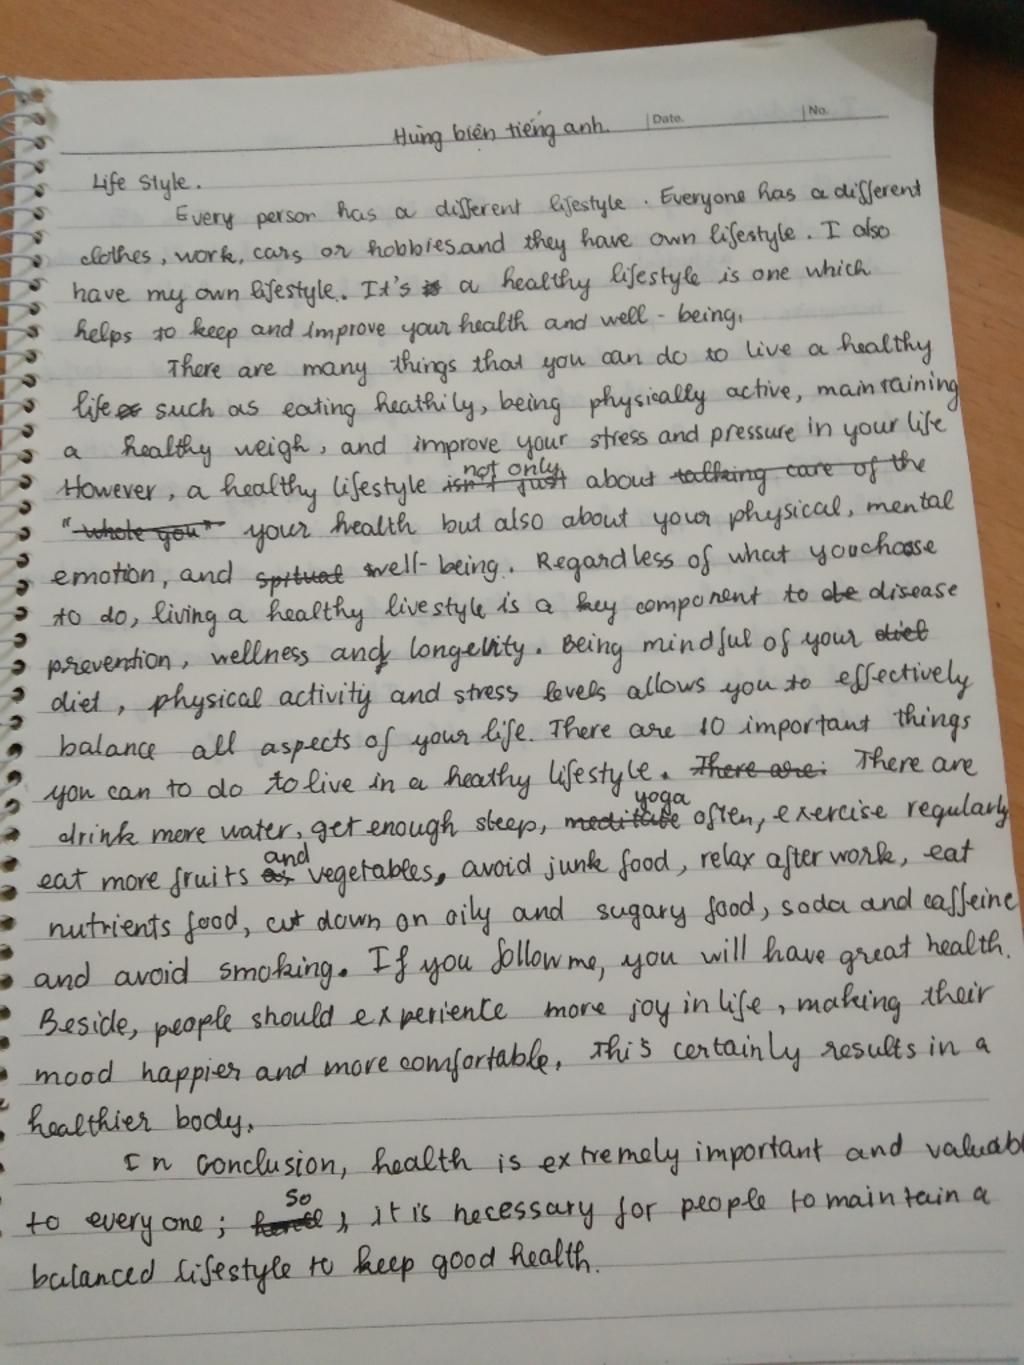 Hùng biện tiếng anh.
Date.
No.
Life Style.
Every person has a different lifestyle. Everyone has a different
clothes, work, cars or hobbies and they have own lifestyle. I also
have my own lifestyle. It's a healthy lifestyle is one which
helps to keep and improve your health and well-being.
There are many things that you can do to live a healthy
life such as eating heathily, being physically active, maintaining
a healthy weigh, and improve your stress and pressure in your life
However, a healthy lifestyle not only about
your health but also about your physical, mental
emotion, and well-being. Regardless of what you choose
to do, living a healthy livestyle is a key component to disease
prevention, wellness and longevity. Being mindful of your
diet, physical activity and stress levels allows you to effectively
balance all aspects of your life. There are 10 important things
you can to do to live in a heathy lifestyle. There are
drink more water, get enough sleep, yoga often, exercise regularly
eat more fruits and vegetables, avoid junk food, relax after work, eat
nutrients food, cut down on oily and sugary food, soda and caffeine
and avoid smoking. If you follow me, you will have great health.
Beside, people should experience more joy in life, making their
mood happier and more comfortable. This certainly results in a
healthier body.
In conclusion, health is extremely important and valuabl
to everyone; so, it is necessary for people to maintain a
balanced lifestyle to keep good health.